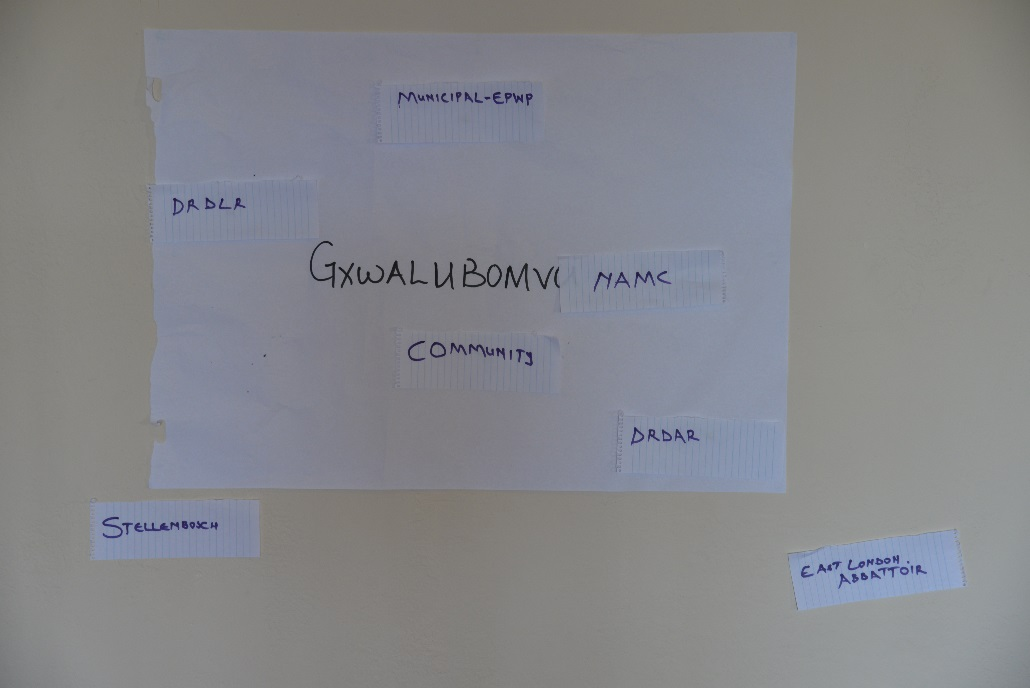 MUNICIPAL-EPWP
DRDLR
GXWALUBOMV
NAMC
COMMUNITY
DRDAR
STELLEMBOSCH
EAST LONDON.
ABBATTOIR